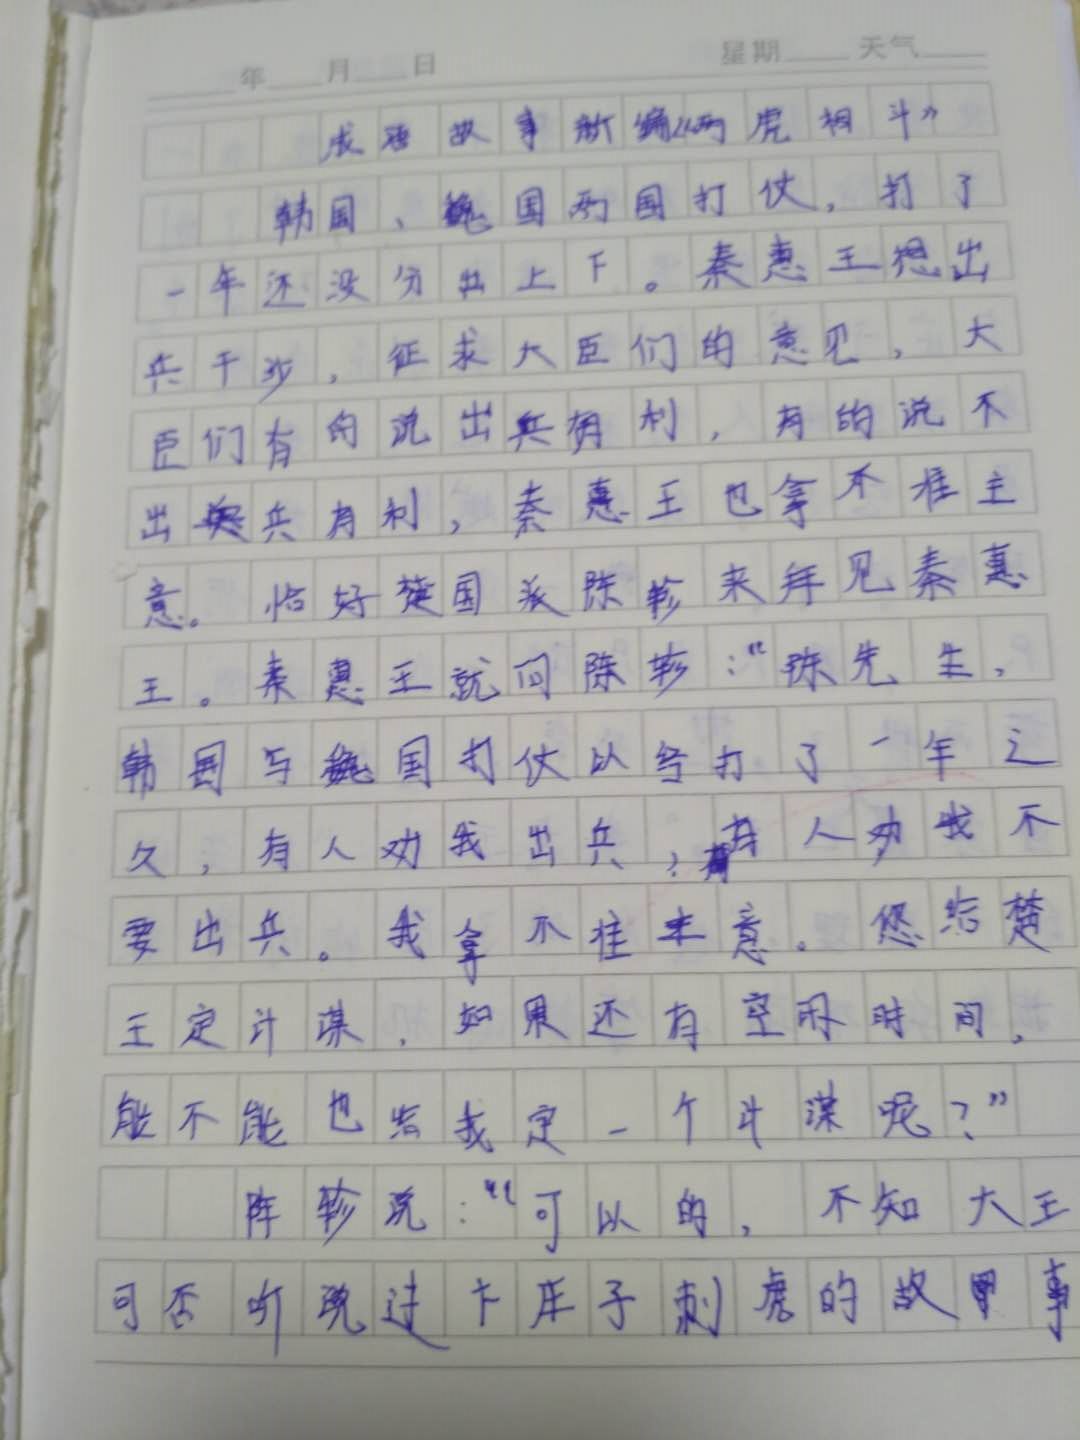 年 月 日 星期 天气
成语故事新编“两虎相斗”
韩国、魏国两国打仗,打了
一年还没分出上下。秦惠王想出
兵干涉,征求大臣们的意见,大
臣们有的说出兵有利,有的说不
出兵有利,秦惠王也拿不准主
意。恰好楚国派陈轸来拜见秦惠
王。秦惠王就问陈轸:“陈先生,
韩国与魏国打仗以经打了一年之
久,有人劝我出兵,有人劝我不
要出兵。我拿不准主意。您给楚
王定计谋,如果还有空闲时间,
能不能也给我定一个计谋呢?”
阵轸说:“可以的,不知大王
可否听说过卞庄子刺虎的故事